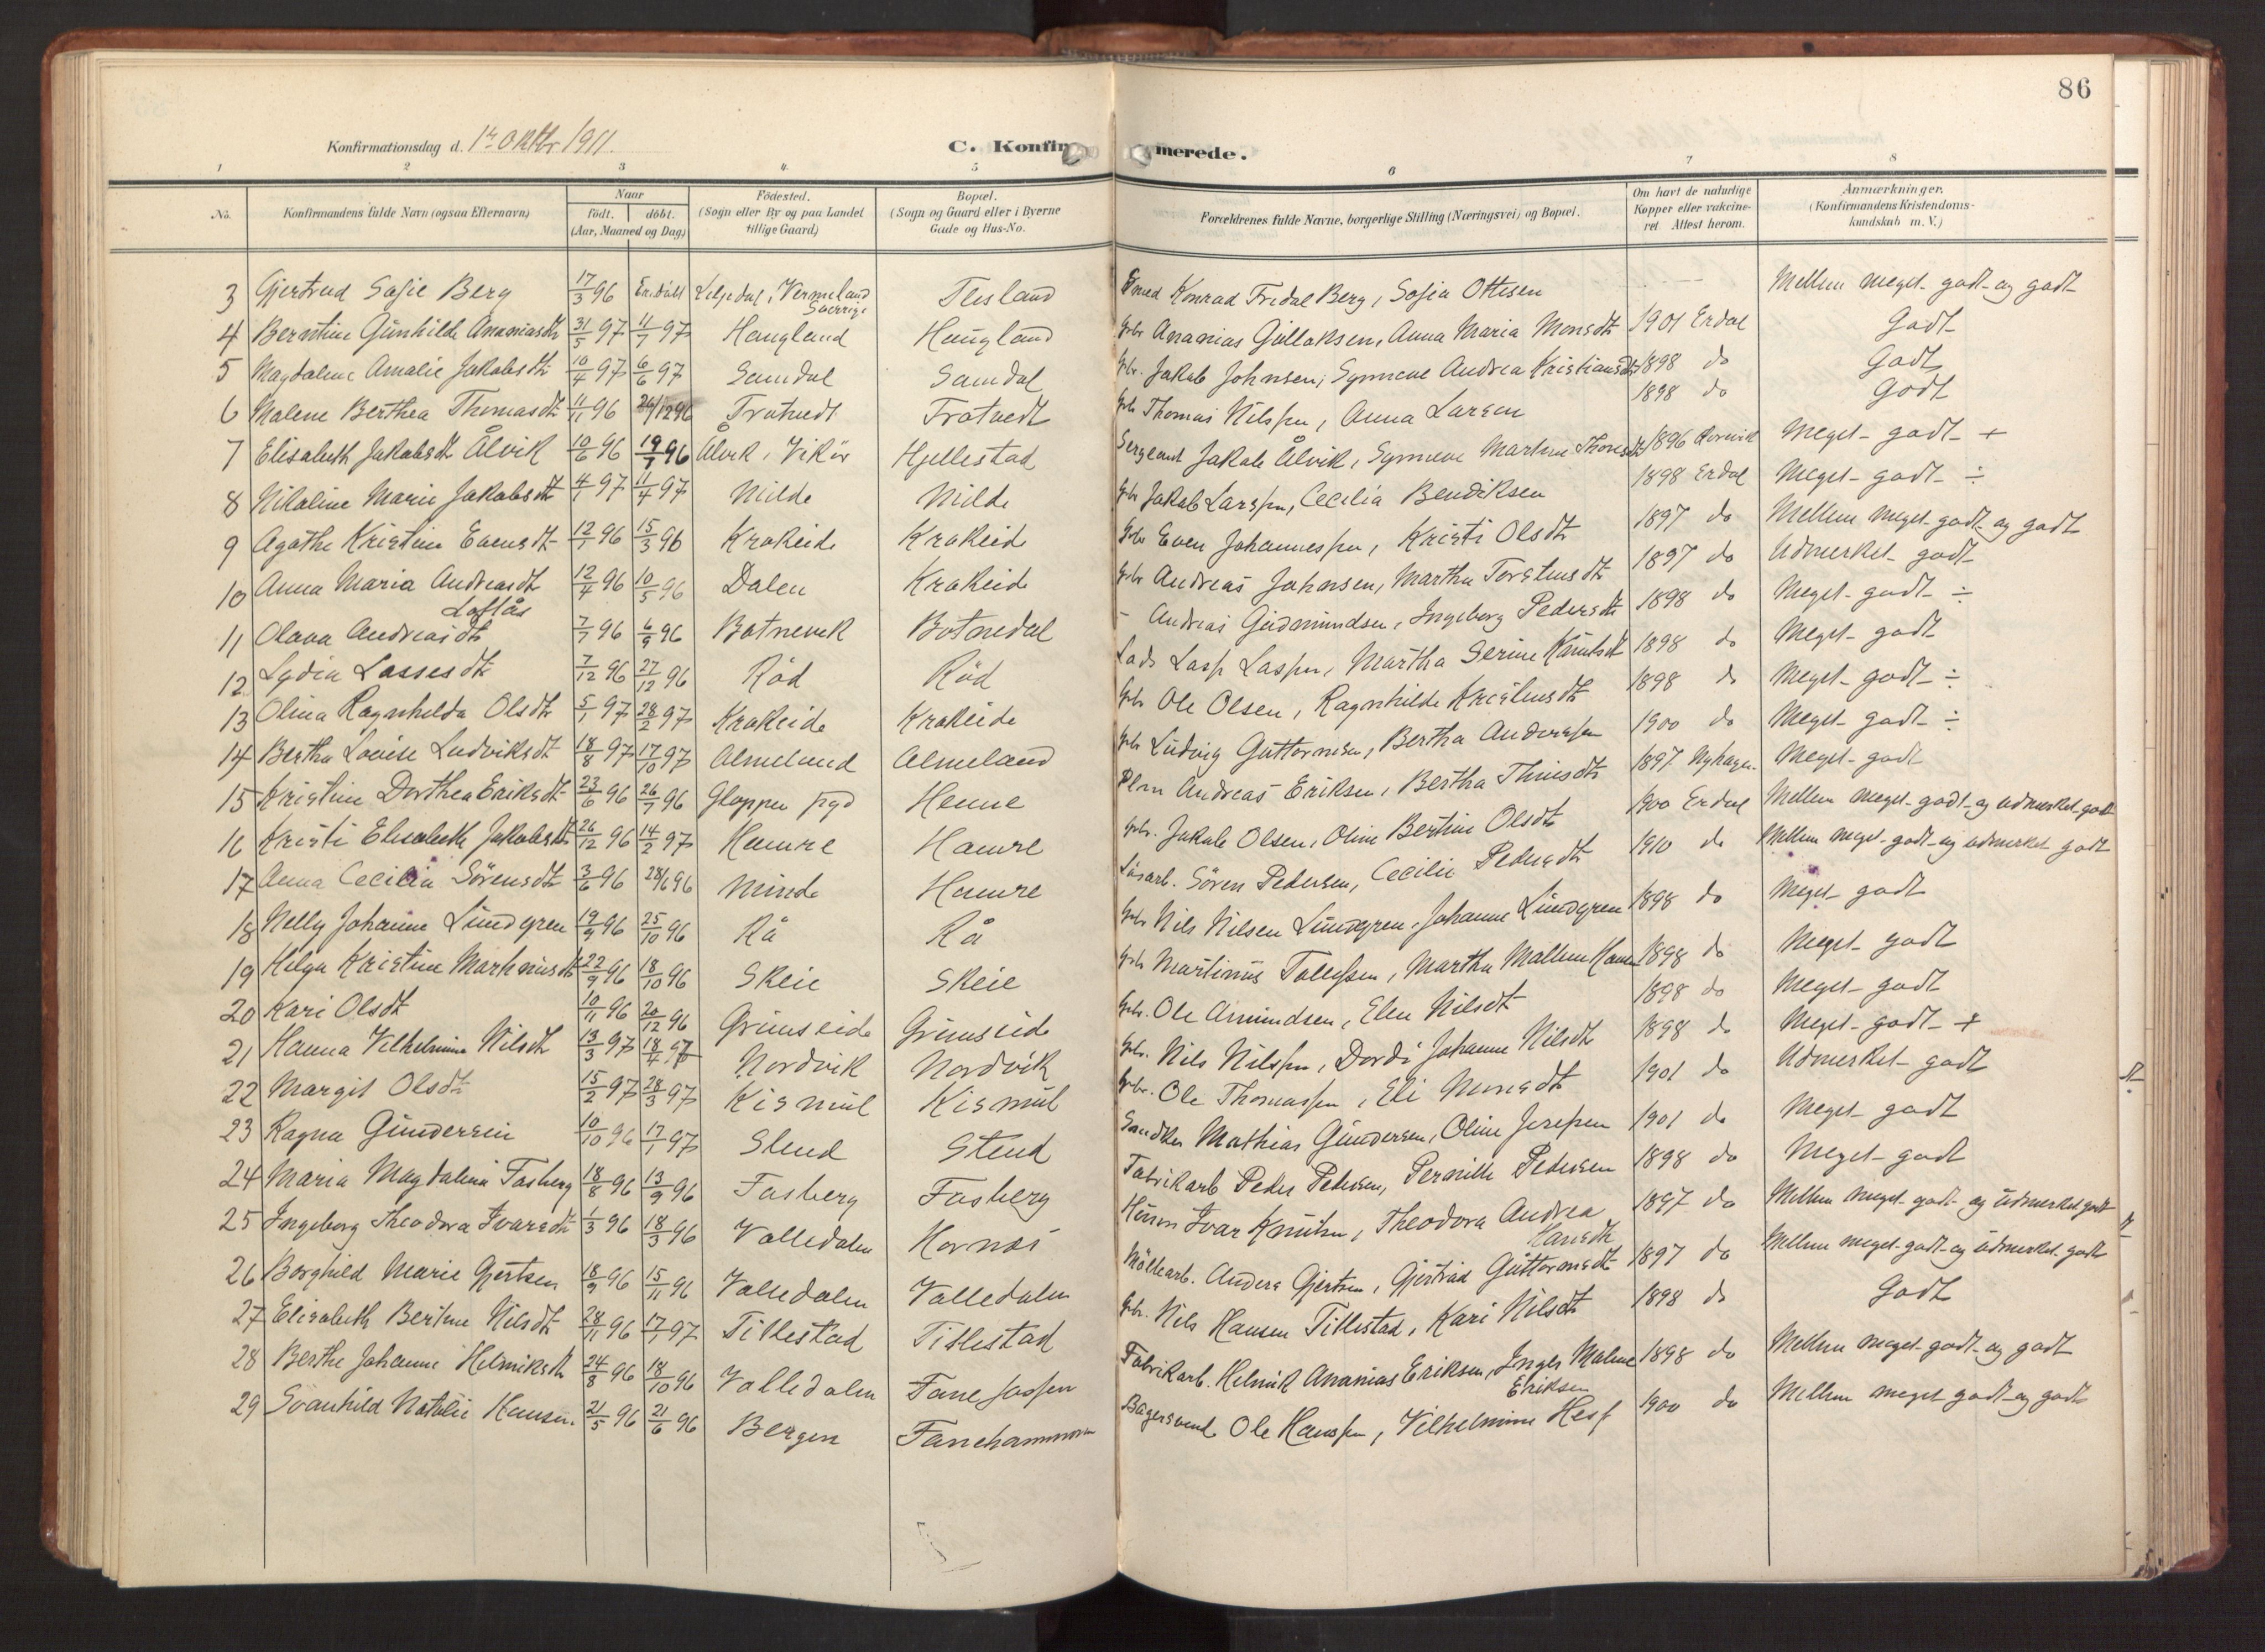 86
Konfirmationsdag d. 1ste Oktbr 1911.
C. Konfirmerede.
1 2 3 4 5 6 7 8
No. Konfirmandens fulde Navn (ogsaa Efternavn) Naar født. døbt. (Aar, Maaned og Dag) Fødested. (Sogn eller By og paa Landet tillige Gaard) Bopæl. (Sogn og Gaard eller i Byerne Gade og Hus-No. Forældrenes fulde Navne, borgerlige Stilling (Næringsvei) og Bopæl. Om havt de naturlige Kopper eller vakcineret. Attest herom. Anmærkninger. (Konfirmandens Kristendomskundskab m. V.)
3 Gjertrud Sofie Berg 17/3 96 Liljedal, Vermeland Sverrige Tlesland Smed Konrad Fredal Berg, Sofia Ottesen Mellem meget godt og godt
4 Berntine Gunhilde Ananiasdt 31/5 97 11/7 97 Haugland Haugland Gbr Ananias Gullaksen, Anna Maria Monsdt 1901 Erdal Godt
5 Magdalene Amalie Jakobsdt 10/4 97 6/6 97 Samdal Samdal Gbr. Jakob Johnsen, Synneve Andrea Kristiansdt 1898 do Godt
6 Malene Berthea Thomasdt 11/11 96 26/12 96 Tratvedt Tratvedt Gbr Thomas Nilssen, Anna Larsen 1898 do Godt
7 Elisabeth Jakobsdt Ålvik 10/6 96 19/7 96 Ålvik, Vikør Hjellestad Sergeant Jakob Ålvik, Synneve Martine Thomasdt 1896 Meget godt +
8 Nikoline Marie Jakobsdt 4/1 97 11/4 97 Milde Milde Gbr Jakob Larssen, Cecilia Bendiksen 1898 Erdal Meget godt ÷
9 Agathe Kristine Evensdt 12/1 96 15/3 96 Krokeide Krokeide Gbr Even Johannessen, Kristi Olsdt 1897 do Mellem meget godt og godt
10 Anna Maria Andreasdt 12/4 96 10/5 96 Dalen Krokeide Gbr Andreas Johnsen, Martha Torstensdt 1897 do Udmerket godt
Loflås
11 Olava Andreasdt 7/7 96 6/9 96 Botnevik Botnedal – Andreas Gudmundsen, Ingeborg Pedersdt 1898 do Meget godt ÷
12 Lydia Lassesdt 7/12 96 27/12 96 Rød Rød Lods Lass Lassen, Martha Serine Knutsdt 1898 do Meget godt
13 Olina Ragnhilda Olsdt 5/1 97 28/2 97 Krokeide Krokeide Gbr Ole Olsen, Ragnhilde Kristensdt 1898 do Meget godt ÷
14 Bertha Louise Ludviksdt 18/8 97 17/10 97 Almeland Almeland Gbr Ludvig Guttormsen, Bertha Anderssen 1900 do Meget godt ÷
15 Kristine Dorthea Eriksdt 23/6 96 26/7 96 Gloppen pgd Henne Andreas Eriksen, Bertha Thuesdt 1897 Meget godt
16 Kristi Elisabeth Jakobsdt 26/12 96 14/2 97 Hamre Hamre Gbr. Jakob Olsen, Oline Bertine Olsdt 1900 Erdal Mellem meget godt og udmerket godt
17 Anna Cecilia Sørensdt 3/6 96 28/6 96 Minde Hamre Løsarb. Søren Pedersen, Cecilie Pedersdt 1910 do Mellem meget godt og udmerket godt
18 Nelly Johanne Lundgren 19/9 96 25/10 96 Rå Rå Gbr Nils Nilsen Lundgren, Johanne Lundgren 1898 do Meget godt
19 Helga Kristine Martinusdt 22/9 96 18/10 96 Skeie Skeie Gbr Martinus Tollefsen, Martha Mallene Hansen 1898 do Meget godt
20 Kari Olsdt 10/11 96 20/12 96 Grimseide Grimseide Gbr. Ole Amundsen, Elen Nilsdt 1898 do Meget godt
21 Hanna Vilhelmina Nilsdt 13/3 97 18/4 97 Nordvik Nordvik Gbr. Nils Nilssen, Dordi Johanne Nilsdt 1898 do Meget godt +
22 Margit Olsdt 15/2 97 28/3 97 Kismul Kismul Gbr. Ole Thomassen, Eli Monsdt 1901 do Udmerket godt
23 Ragna Gundersen 10/10 96 17/1 97 Stend Stend Mathias Gundersen, Oline Josefsen 1901 do Meget godt
24 Maria Magdalina Fasberg 18/8 96 13/9 96 Fasberg Fasberg Fabrikarb Peder Pedersen, Pernille Pedersen 1898 do Meget godt
25 Ingeborg Theodora Ivarsdt 1/3 96 18/3 96 Valledalen Hornes Husm Ivar Knutsen, Theodora Andrea Hansdt 1897 do Mellem meget godt og udmerket godt
26 Borghild Marie Gjertsen 18/9 96 15/11 96 Valledalen Valledalen Møllearb. Anders Gjertsen, Gjertrud Guttormsdt 1897 do Mellem meget godt og udmerket godt
27 Elisabeth Bertine Nilsdt 28/11 96 17/1 97 Titlestad Titlestad Gbr. Nils Hansen Titlestad, Kari Nilsdt 1898 do Godt
28 Berthe Johanne Helmiksdt 24/8 96 18/10 96 Valledalen Fanefossen Fabrikarb. Helmik Ananias Eriksen, Inger Malene Eriksen 1898 do Mellem meget godt og godt
29 Svanhild Natalie Hansen. 21/5 96 21/6 96 Bergen Fanehammeren Bagersvend Ole Hanssen, Vilhelmine Hess 1900 do Mellem meget godt og godt